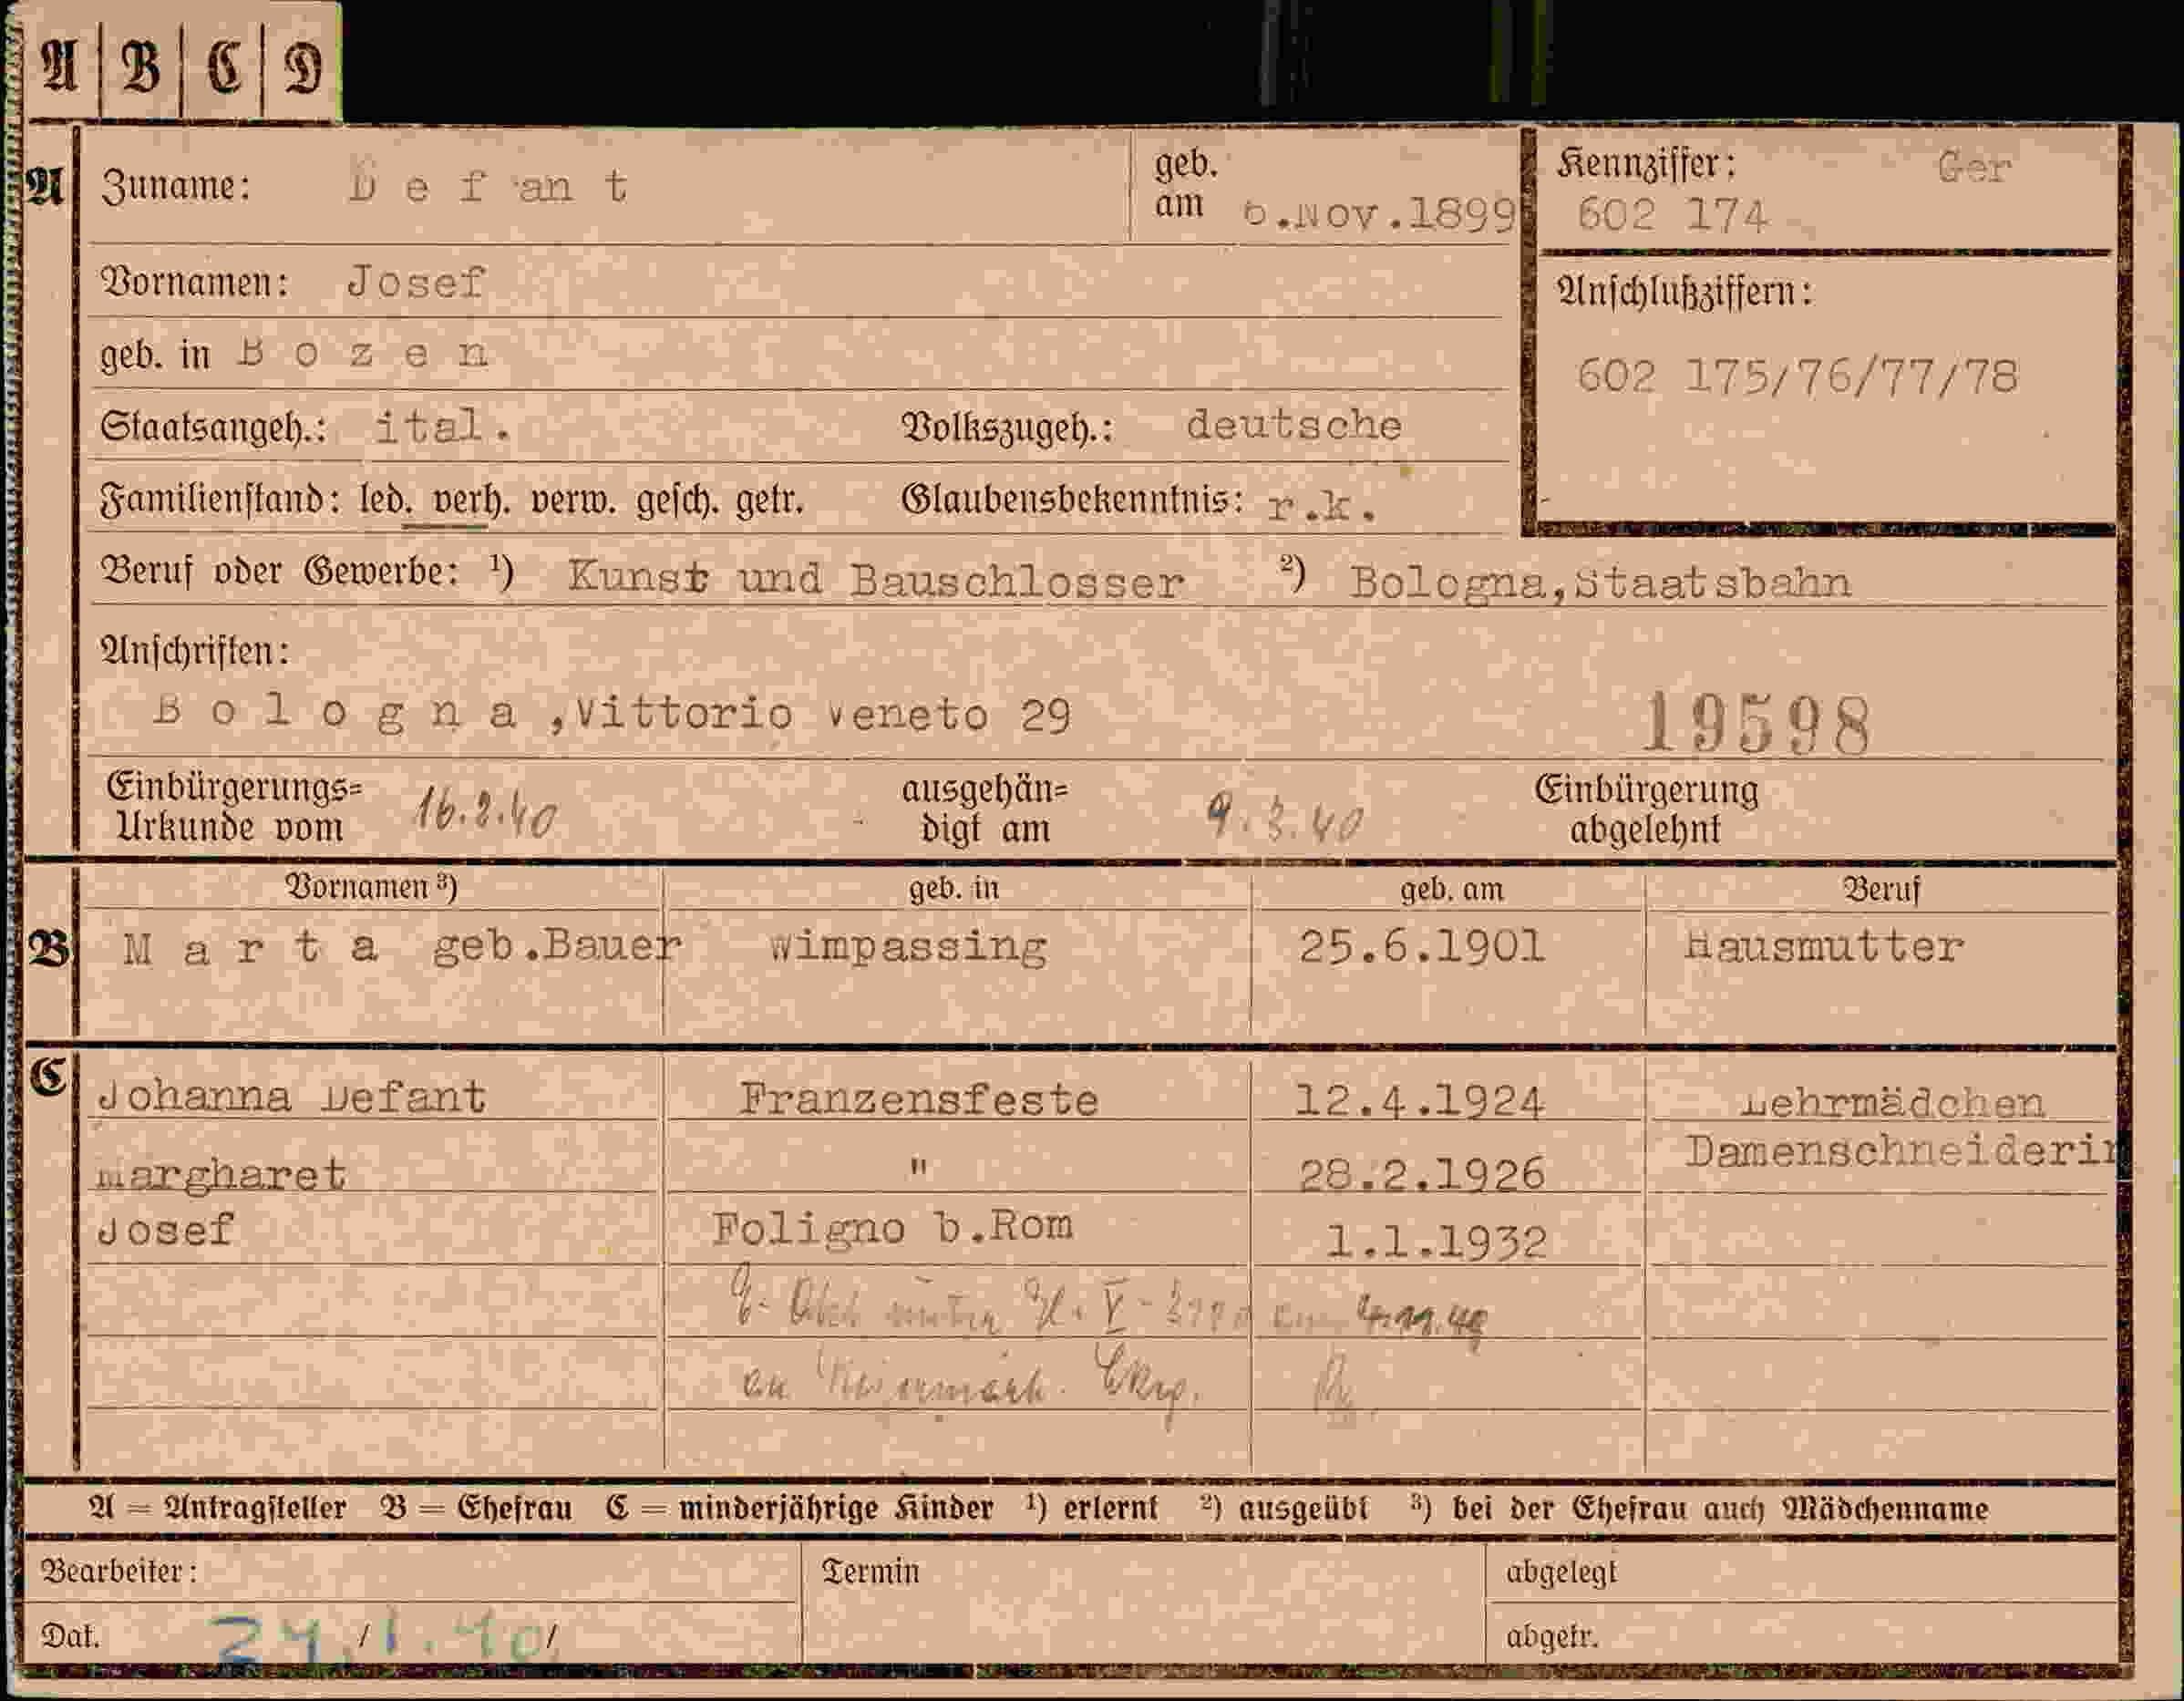 A | B | C | D
A Zuname: D e f an t geb. am 6.Nov.1899 Kennziffer: Ger
602 174
Vornamen: Josef
Anschlußziffern:
geb. in B o z e n
602 175/76/77/78
Staatsangeh.: ital. Volkszugeh.: deutsche
Familienstand: led. verh. verw. gesch. getr. Glaubensbekenntnis: r.k.
Beruf oder Gewerbe: ¹) Kunst und Bauschlosser ²) Bologna,Staatsbahn
Anschriften:
B o l o g n a ,Vittorio Veneto 29 19598
Einbürgerungs= ausgehän= Einbürgerung
Urkunde vom 16.2.40 digt am 9.3.40 abgelehnt
Vornamen ³) geb. in geb. am Beruf
B M a r t a geb.Bauer Wimpassing 25.6.1901 Hausmutter
C Johanna Defant Franzensfeste 12.4.1924 Lehrmädchen
Damenschneiderin
Margharet " 28.2.1926
Josef Foligno b.Rom 1.1.1932
A = Antragsteller B = Ehefrau C = minderjährige Kinder ¹) erlernt ²) ausgeübt ³) bei der Ehefrau auch Mädchenname
Bearbeiter: Termin abgelegt
Dat. 24./1.40/ abgetr.